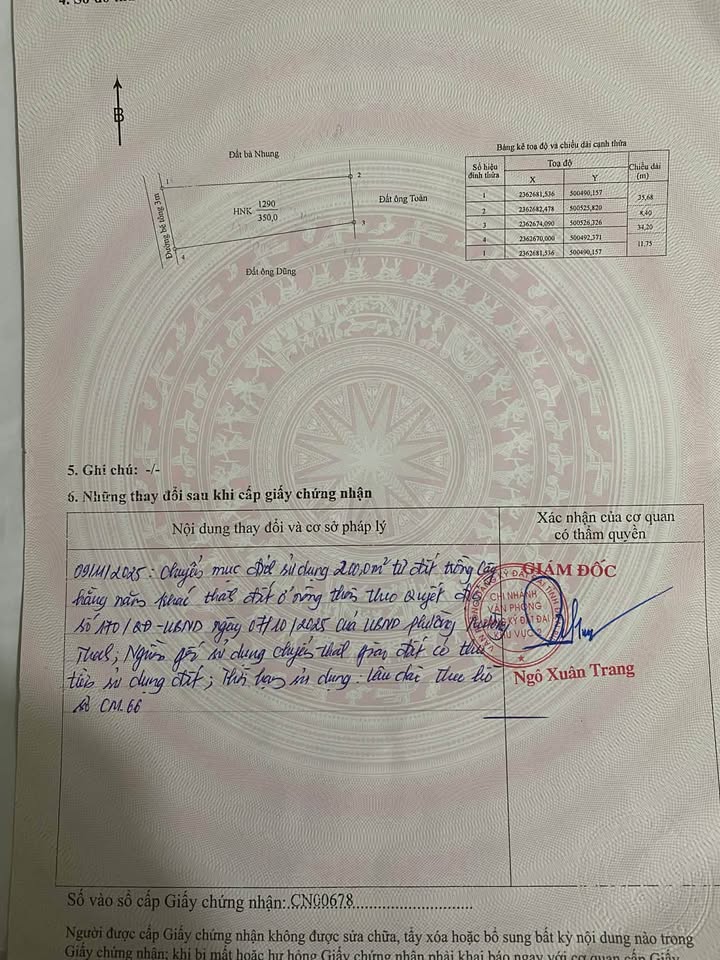 4. Sơ đồ
B
Đất bà Nhung
1
2
Đường bê tông 3m
HNK 1290
350,0
Đất ông Toàn
3
4
Đất ông Dũng
Bảng kê toạ độ và chiều dài cạnh thửa
Số hiệu đỉnh thửa Toạ độ Chiều dài (m)
X Y
1 2362681,536 500490,157
35,68
2 2362682,478 500525,820
8,40
3 2362674,090 500526,326
34,20
4 2362670,000 500492,371
11,75
1 2362681,536 500490,157
5. Ghi chú: -/-
6. Những thay đổi sau khi cấp giấy chứng nhận
Nội dung thay đổi và cơ sở pháp lý
Xác nhận của cơ quan
có thẩm quyền
09/11/2025: Chuyển mục đích sử dụng 200,0m² từ đất trồng cây
hằng năm khác thành đất ở nông thôn theo Quyết định
số 170/QĐ-UBND ngày 07/10/2025 của UBND phường
; Nguồn gốc sử dụng chuyển thành giao đất có thu
tiền sử dụng đất; Thời hạn sử dụng: lâu dài theo hồ
sơ CM.66
GIÁM ĐỐC
CHI NHÁNH
VĂN PHÒNG
ĐĂNG KÝ ĐẤT ĐAI
KHU VỰC
Ngô Xuân Trang
Số vào sổ cấp Giấy chứng nhận: CN00678
Người được cấp Giấy chứng nhận không được sửa chữa, tẩy xóa hoặc bổ sung bất kỳ nội dung nào trong
Giấy chứng nhận; khi bị mất hoặc hư hỏng Giấy chứng nhận phải khai báo ngay với cơ quan cấp Giấy